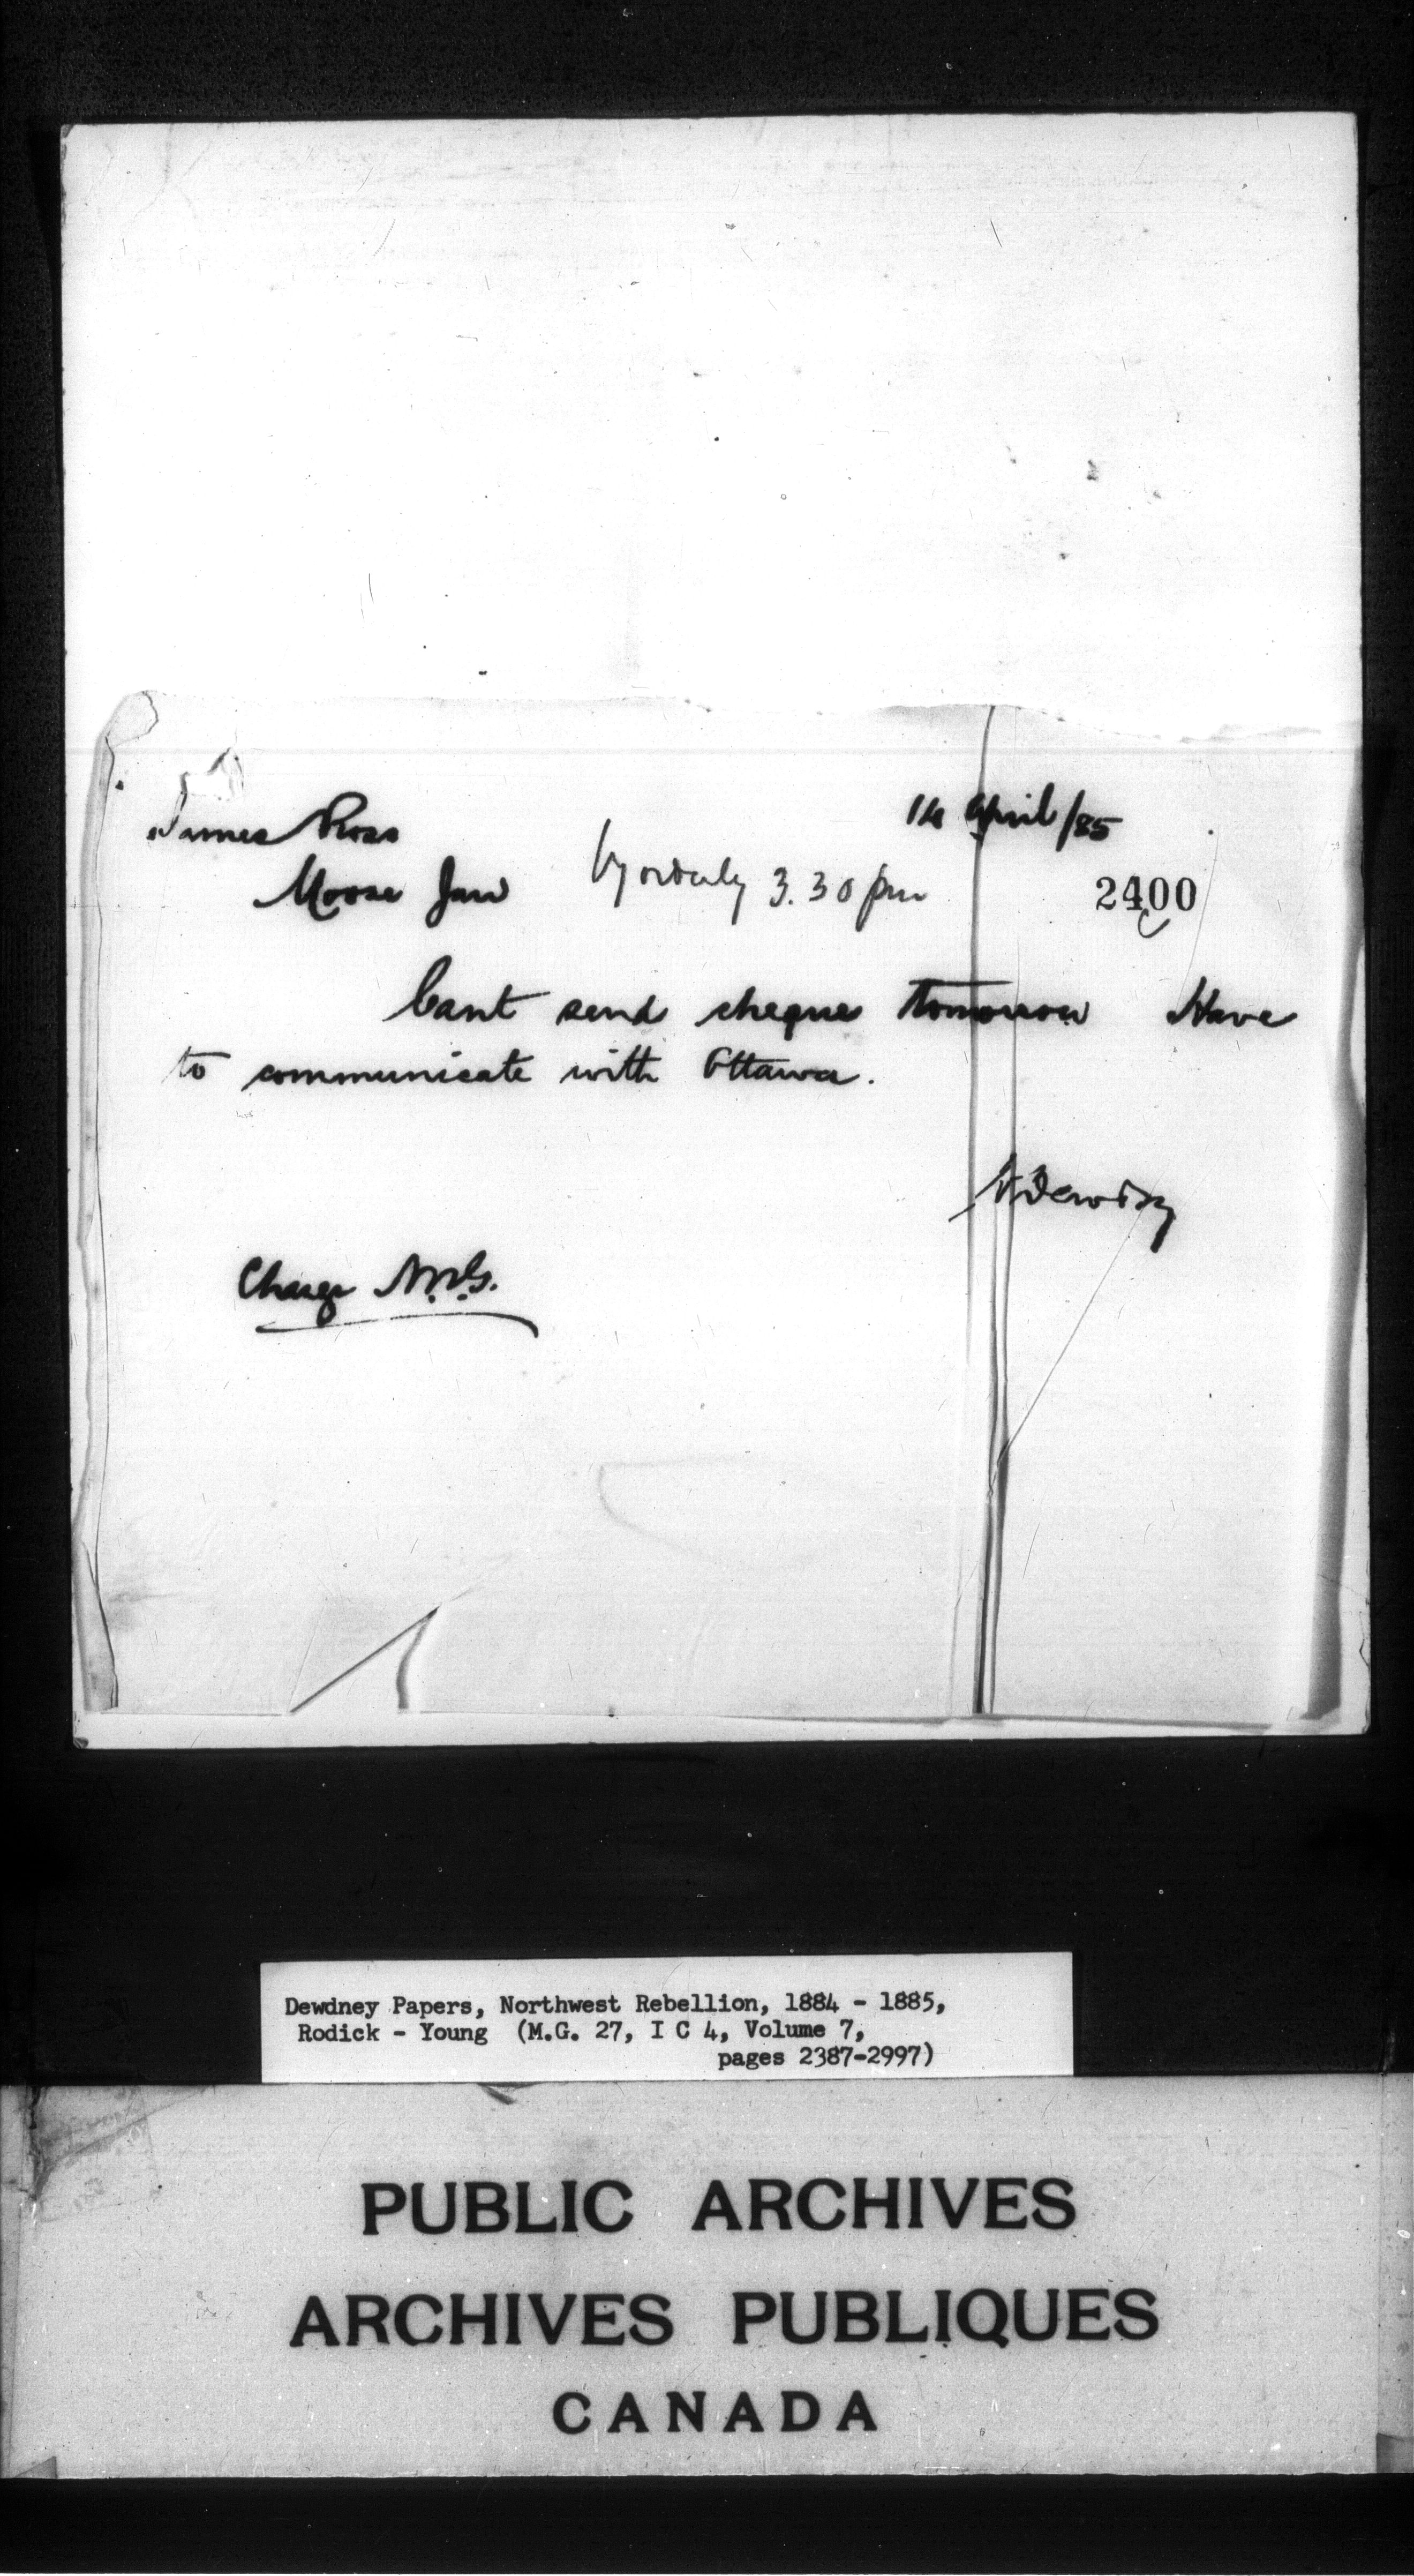 14 April/85
James Ross
Moose Jaw by orderly 3.30 pm
2400
Cant send cheque tomorrow Have
to communicate with Ottawa.
E Dewdney
Charge
Dewdney Papers, Northwest Rebellion, 1884 - 1885,
Rodick - Young (M.G. 27, I C 4, Volume 7,
pages 2387-2997)
PUBLIC ARCHIVES
ARCHIVES PUBLIQUES
CANADA